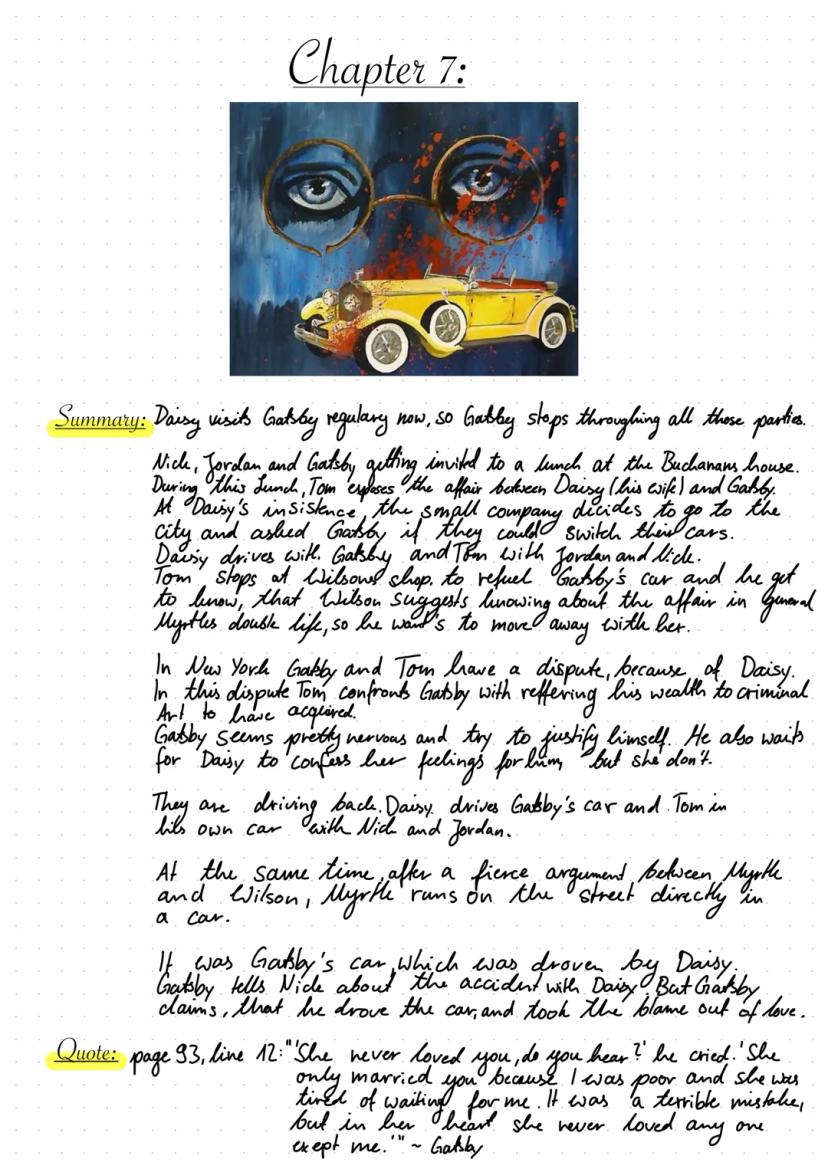 Chapter 7:
Summary: Daisy visits Gatsby regulary now, so Gatsby stops throughing all those parties.
Nick, Jordan and Gatsby getting invited to a lunch at the Buchanans house.
During this Lunch, Tom exposes the affair between Daisy (his wife) and Gatsby.
At Daisy's insistence, the small company decides to go to the
city and asked Gatsby if they could switch their cars.
Daisy drives with Gatsby and Tom with Jordan and Nick.
Tom stops at Wilsons shop to refuel Gatsby's car and he get
to know, that Wilson suggests knowing about the affair in general
Myrtles double life, so he want's to move away with her.
In New York Gatsby and Tom have a dispute, because of Daisy.
In this dispute Tom confronts Gatsby with reffering his wealth to criminal
Art to have acquired.
Gatsby seems pretty nervous and try to justify himself. He also waits
for Daisy to confess her feelings for him, but she don't.
They are driving back. Daisy drives Gatsby's car and Tom in
his own car with Nick and Jordan.
At the same time, after a fierce argument between Myrtle
and Wilson, Myrtle runs on the street directly in
a car.
It was Gatsby's car, which was droven by Daisy.
Gatsby tells Nick about the accident with Daisy. But Gatsby
claims, that he drove the car, and took the blame out of love.
Quote: page 93, line 12: "'She never loved you, do you hear?' he cried. 'She
only married you because I was poor and she was
tired of waiting for me. It was a terrible mistake,
but in her heart she never loved any one
exept me.'" ~ Gatsby